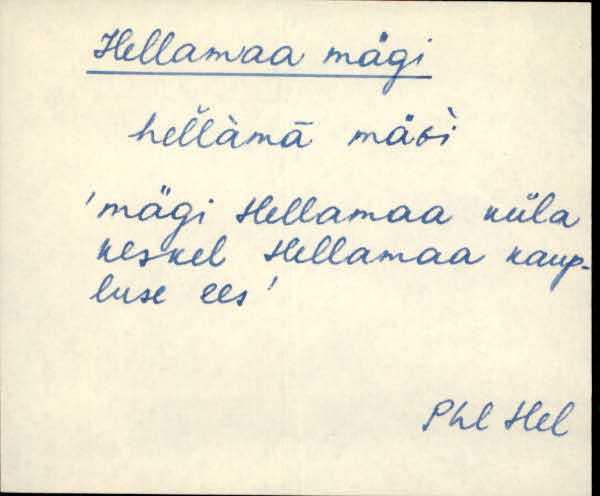 Hellamaa mägi
hel̆làmā mäɢì
'mägi Hellamaa küla
keskel Hellamaa kaup-
luse ees'
Phl Hel